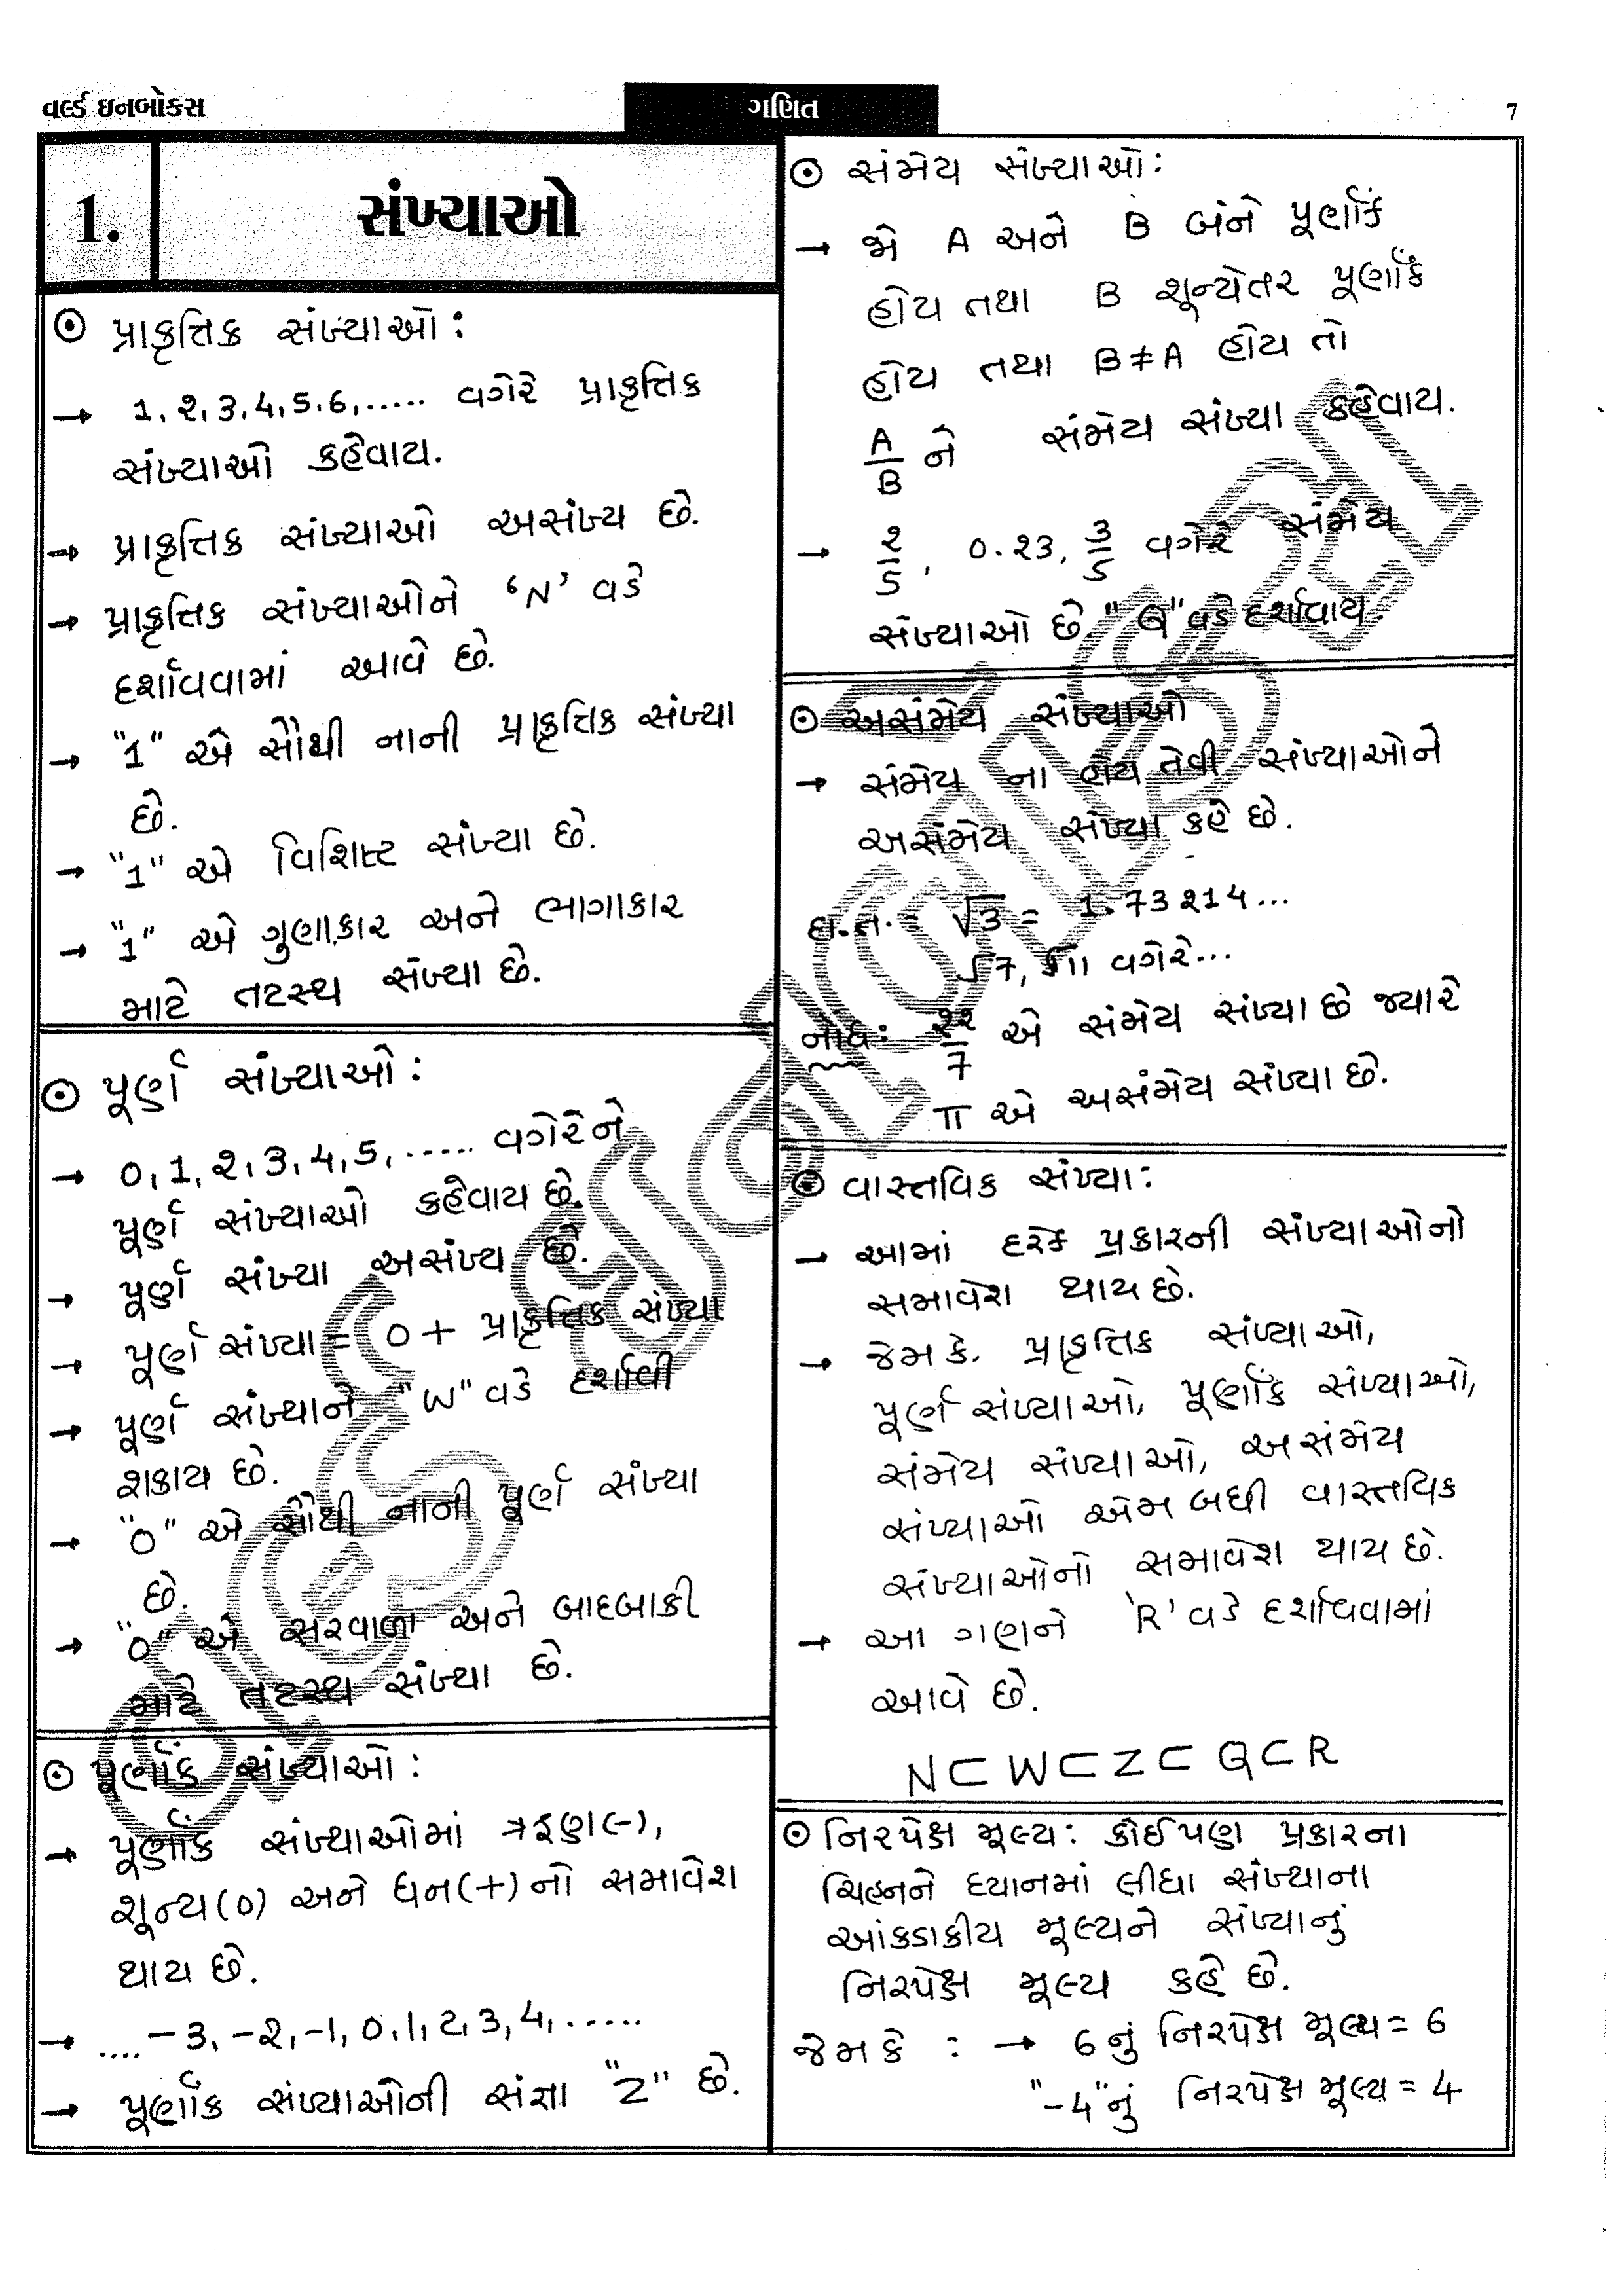 વર્લ્ડ ઇનબોકસ
ગણિત
7
1.
સંખ્યાઓ
⊙ પ્રાકૃત્તિક સંખ્યાઓ :
→ 1, 2, 3, 4, 5, 6, ..... વગેરે પ્રાકૃત્તિક
સંખ્યાઓ કહેવાય.
→ પ્રાકૃત્તિક સંખ્યાઓ અસંખ્ય છે.
→ પ્રાકૃત્તિક સંખ્યાઓને ‘N’ વડે
દર્શાવવામાં આવે છે.
→ "1" એ સૌથી નાની પ્રાકૃત્તિક સંખ્યા
છે.
→ "1" એ વિશિષ્ટ સંખ્યા છે.
→ "1" એ ગુણાકાર અને ભાગાકાર
માટે તટસ્થ સંખ્યા છે.
⊙ પૂર્ણ સંખ્યાઓ :
→ 0, 1, 2, 3, 4, 5, ..... વગેરેને
પૂર્ણ સંખ્યાઓ કહેવાય છે.
→ પૂર્ણ સંખ્યા અસંખ્ય છે.
→ પૂર્ણ સંખ્યા = 0 + પ્રાકૃત્તિક સંખ્યા
→ પૂર્ણ સંખ્યાને "W" વડે દર્શાવી
શકાય છે.
→ "0" એ સૌથી નાની પૂર્ણ સંખ્યા
છે.
→ "0" એ સરવાળા અને બાદબાકી
માટે તટસ્થ સંખ્યા છે.
⊙ પૂર્ણાંક સંખ્યાઓ :
→ પૂર્ણાંક સંખ્યાઓમાં ઋણ(-),
શૂન્ય(0) અને ધન(+)નો સમાવેશ
થાય છે.
→ .... -3, -2, -1, 0, 1, 2, 3, 4, .....
→ પૂર્ણાંક સંખ્યાઓની સંજ્ઞા "Z" છે.
⊙ સંમેય સંખ્યાઓ :
→ જો A અને B બંને પૂર્ણાંક
હોય તથા B શૂન્યેતર પૂર્ણાંક
હોય તથા B ≠ A હોય તો
A/B ને સંમેય સંખ્યા કહેવાય.
→ 2/5, 0.23, 3/5 વગેરે સંમેય
સંખ્યાઓ છે "Q" વડે દર્શાવાય.
⊙ અસંમેય સંખ્યાઓ
→ સંમેય ના હોય તેવી સંખ્યાઓને
અસંમેય સંખ્યા કહે છે.
દા.ત. : √3 = 1.73214...
√7, √11 વગેરે...
નોંધ: 22/7 એ સંમેય સંખ્યા છે જ્યારે
π એ અસંમેય સંખ્યા છે.
⊙ વાસ્તવિક સંખ્યા :
→ આમાં દરેક પ્રકારની સંખ્યાઓનો
સમાવેશ થાય છે.
→ જેમ કે, પ્રાકૃત્તિક સંખ્યાઓ,
પૂર્ણ સંખ્યાઓ, પૂર્ણાંક સંખ્યાઓ,
સંમેય સંખ્યાઓ, અસંમેય
સંખ્યાઓ એમ બધી વાસ્તવિક
સંખ્યાઓનો સમાવેશ થાય છે.
→ આ ગણને ‘R’ વડે દર્શાવવામાં
આવે છે.
N⊂W⊂Z⊂Q⊂R
⊙ નિરપેક્ષ મૂલ્ય : કોઈપણ પ્રકારના
ચિહ્નને ધ્યાનમાં લીધા સંખ્યાના
આંકડાકીય મૂલ્યને સંખ્યાનું
નિરપેક્ષ મૂલ્ય કહે છે.
જેમ કે : → 6 નું નિરપેક્ષ મૂલ્ય = 6
"-4"નું નિરપેક્ષ મૂલ્ય = 4